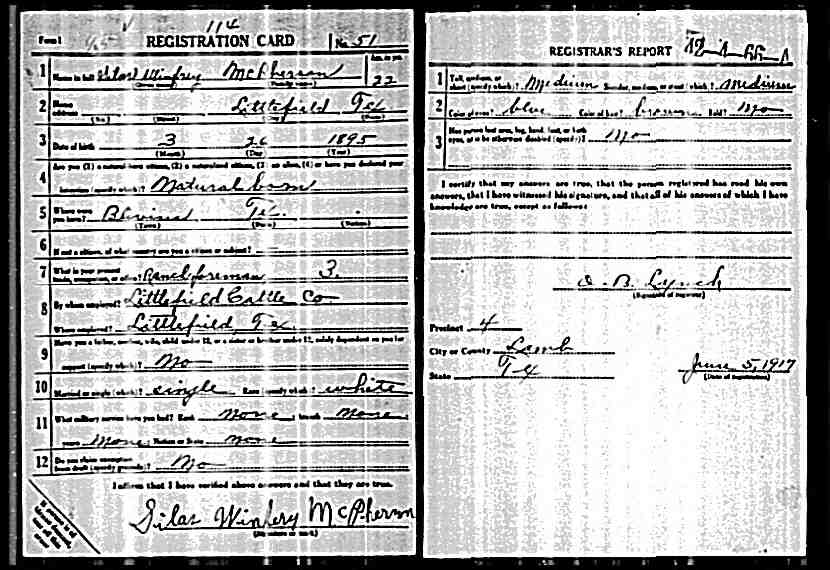 Form 1 REGISTRATION CARD No. 51
114
1 Name in full Silas Winfrey McPherson Age, in yrs. 22
(Given name) (Family name)
2 Home address Littlefield Tex
(No.) (Street) (City) (State)
3 Date of birth 3 26 1895
(Month) (Day) (Year)
4 Are you (1) a natural born citizen, (2) a naturalized citizen, (3) an alien, (4) or have you declared your
intention (specify which)? Natural born
5 Where were you born? Tex.
(Town) (State) (Nation)
6 If not a citizen, of what country are you a citizen or subject?
7 What is your present trade, occupation, or office? Ranch foreman 3.
8 By whom employed? Littlefield Cattle Co
Where employed? Littlefield, Tex.
9 Have you a father, mother, wife, child under 12, or a sister or brother under 12, solely dependent on you for
support (specify which)? No
10 Married or single (which)? single Race (specify which)? white
11 What military service have you had? Rank None ; branch None ;
years None ; Nation or State none
12 Do you claim exemption from draft (specify grounds)? No
I affirm that I have verified above answers and that they are true.
Silas Winfery McPherson
(Signature or mark)
REGISTRAR'S REPORT
1 Tall, medium, or short (specify which)? Medium Slender, medium, or stout (which)? Medium
2 Color of eyes? blue Color of hair? brown Bald? No
3 Has person lost arm, leg, hand, foot, or both eyes, or is he otherwise disabled (specify)? No
I certify that my answers are true, that the person registered has read his own
answers, that I have witnessed his signature, and that all of his answers of which I have
knowledge are true, except as follows:
O. B. Lynch
(Signature of registrar)
Precinct 4
City or County Lamb
State Tex
June 5, 1917
(Date of registration)